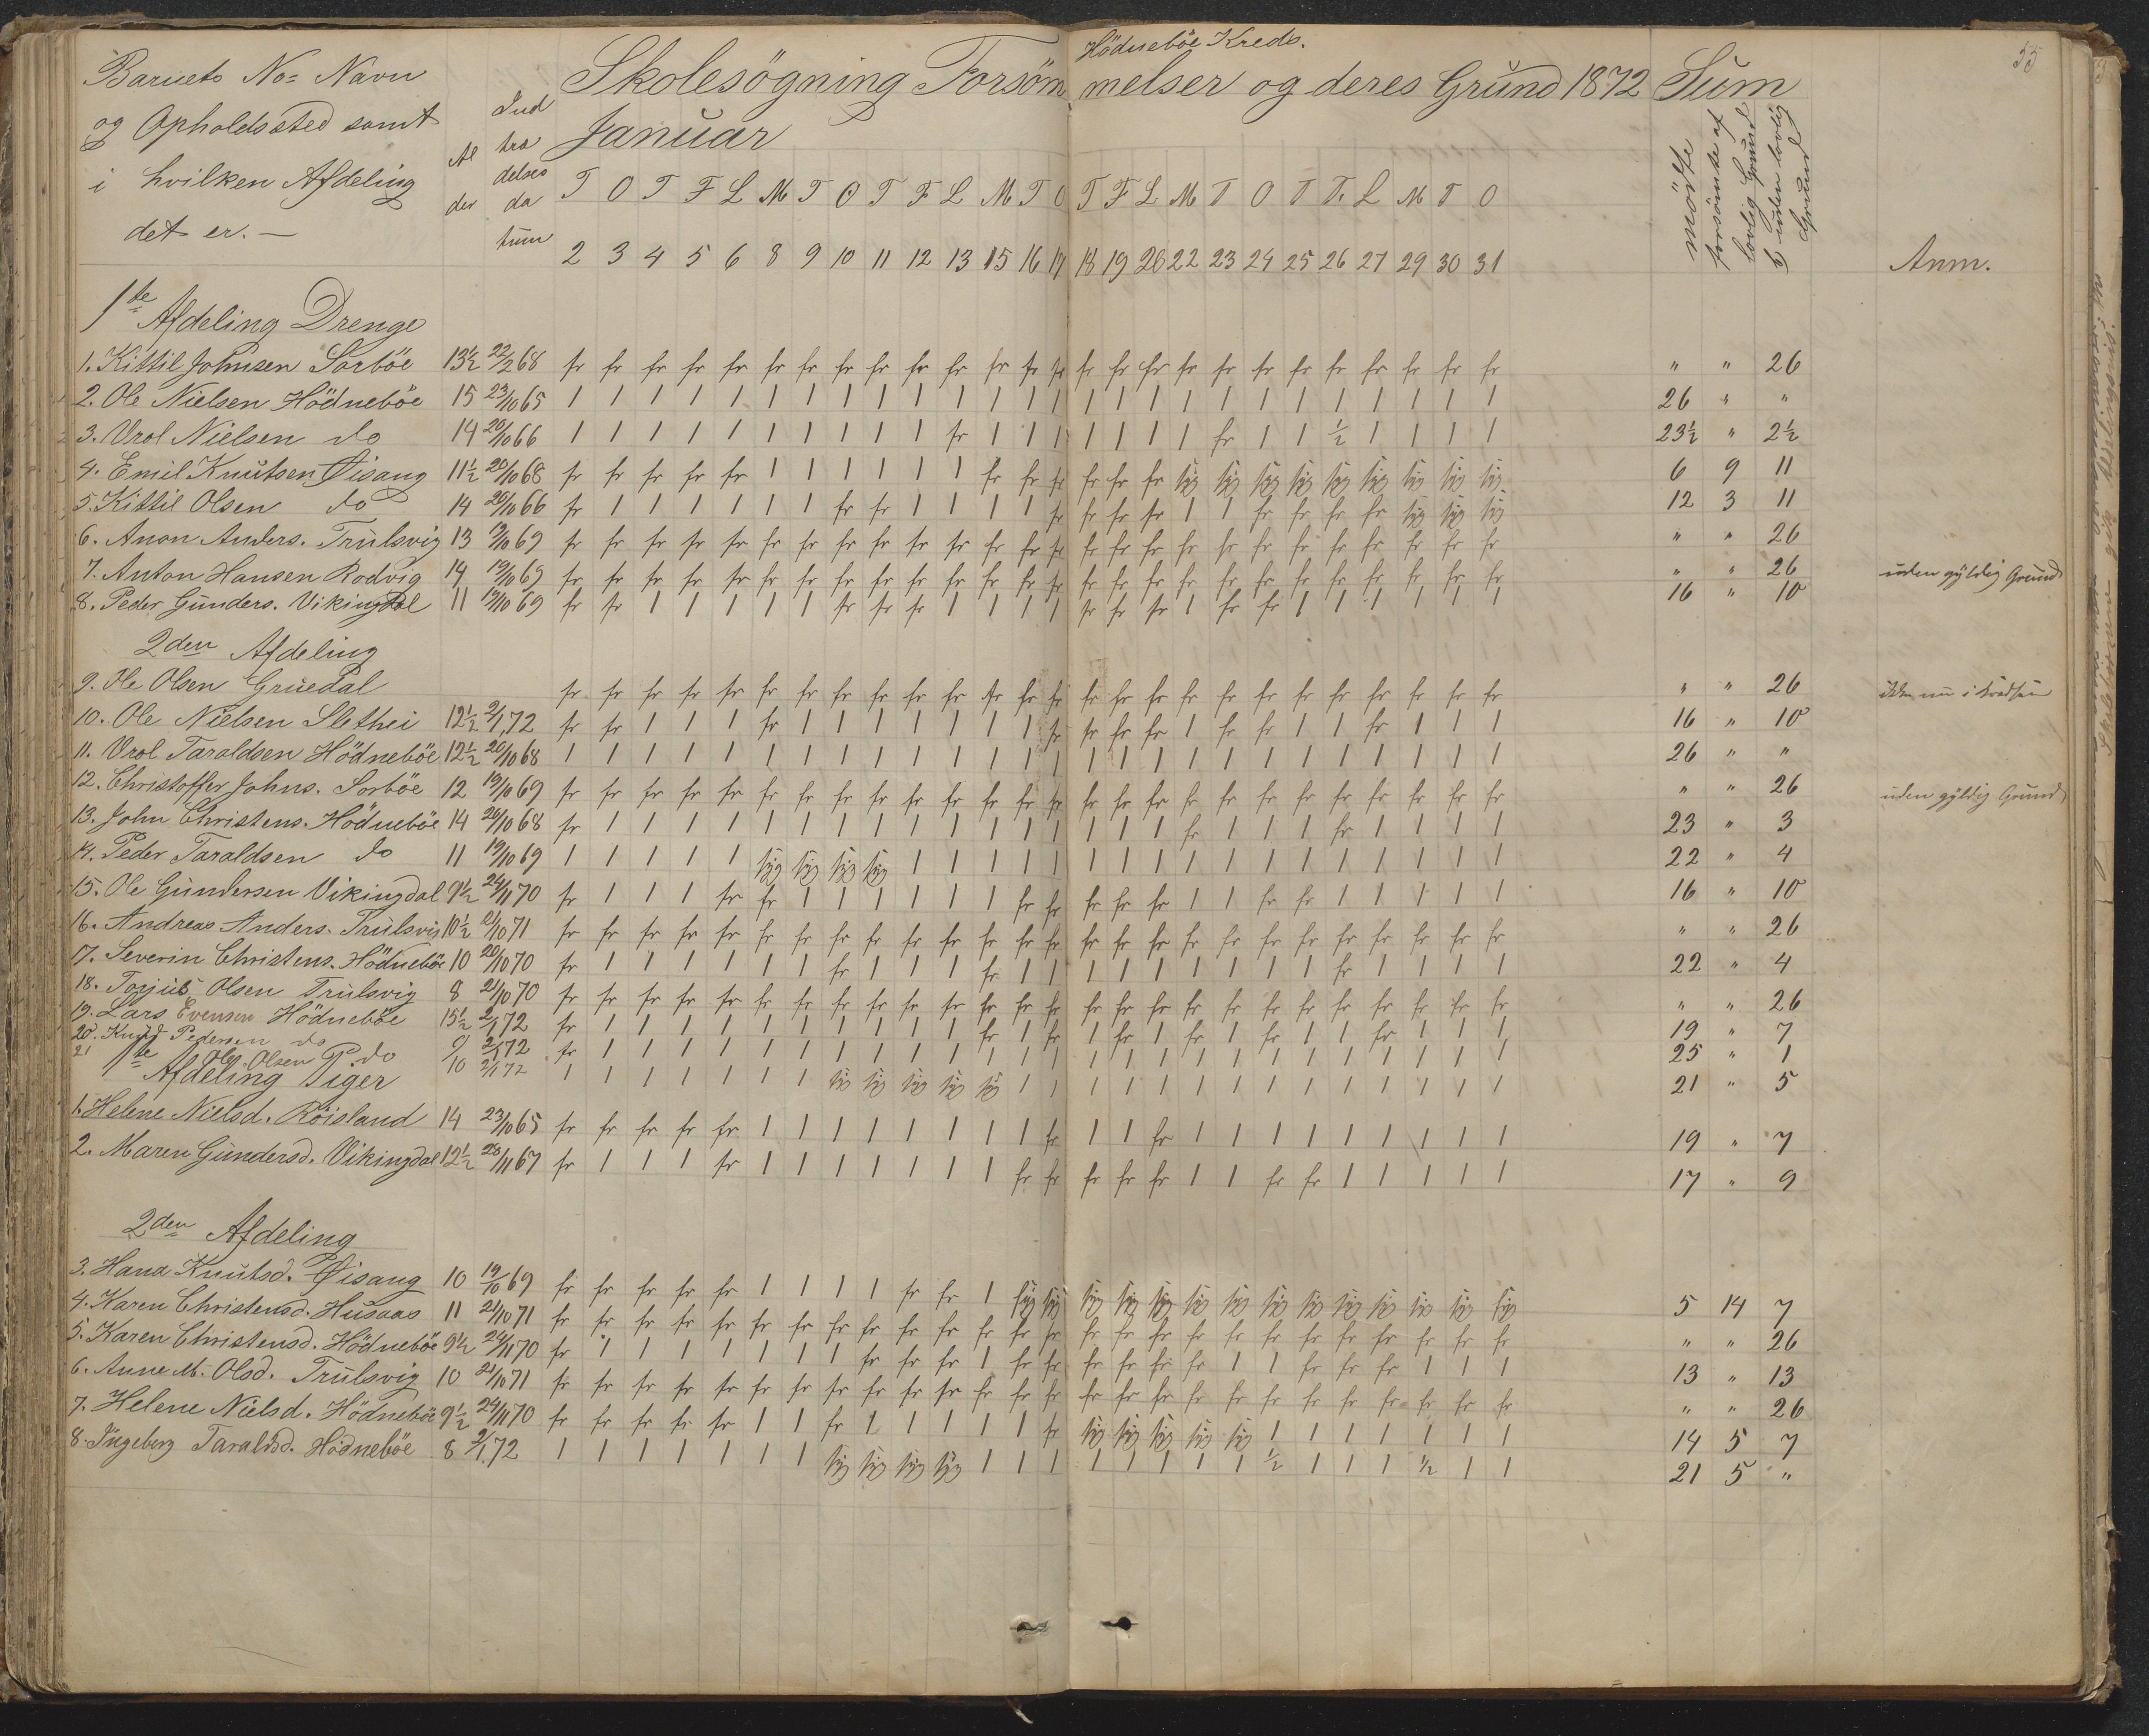 55
Hödneböe Kreds.
Barnets No= Navn
og Opholdssted samt
i hvilken Afdeling
det er. —
Al
der
Ind
træ
delses
da
tum
Skolesögning Forsöm melser og deres Grund 1872 Sum
Januar
mörte
forsömte af
lovlig Grund
uden lovlig
Grund
Anm.
T O T F L M T O T F L M T O T F L M T O T F. L M T O
2 3 4 5 6 8 9 10 11 12 13 15 16 17 18 19 20 22 23 24 25 26 27 29 30 31
1ste Afdeling Drenge
1. Kittil Johnsen Sorböe 13½ 22/2 68 fr fr fr fr fr fr fr fr fr fr fr fr fr fr fr fr fr fr fr fr fr fr fr fr fr fr " " 26
2. Ole Nielsen Hödneböe 15 23/10 65 1 1 1 1 1 1 1 1 1 1 1 1 1 1 1 1 1 1 1 1 1 1 1 1 1 1 26 " "
3. Vrol Nielsen do 14 20/10 66 1 1 1 1 1 1 1 1 1 1 fr 1 1 1 1 1 1 1 fr 1 1 ½ 1 1 1 1 23½ " 2½
4. Emil Knutsen Øisang 11½ 20/10 68 fr fr fr fr fr 1 1 1 1 1 1 fr fr fr fr fr fr syg syg syg syg syg syg syg syg syg 6 9 11
5. Kittil Olsen do 14 20/10 66 fr 1 1 1 1 1 1 fr fr 1 1 1 1 fr fr fr fr 1 1 fr fr fr fr syg syg syg 12 3 11
6. Anon Anders. Trulsvig 13 19/10 69 fr fr fr fr fr fr fr fr fr fr fr fr fr fr fr fr fr fr fr fr fr fr fr fr fr fr " " 26
7. Anton Hansen Rodvig 14 19/10 69 fr fr fr fr fr fr fr fr fr fr fr fr fr fr fr fr fr fr fr fr fr fr fr fr fr fr " " 26 uden gyldig Grund
8. Peder Gunders. Vikingdal 11 19/10 69 fr fr 1 1 1 1 1 fr fr fr 1 1 1 1 fr fr fr 1 fr fr 1 1 1 1 1 1 16 " 10
2den Afdeling
9. Ole Olsen Gruedal fr fr fr fr fr fr fr fr fr fr fr fr fr fr fr fr fr fr fr fr fr fr fr fr fr fr " " 26
10. Ole Nielsen Slethei 12½ 2/1 72 fr fr 1 1 1 fr 1 1 1 1 1 1 1 fr fr fr fr 1 fr fr 1 1 fr 1 1 1 16 " 10
11. Vrol Taraldsen Hödneböe 12½ 20/10 68 1 1 1 1 1 1 1 1 1 1 1 1 1 1 1 1 1 1 1 1 1 1 1 1 1 1 26 " "
12. Christoffer Johns. Sorböe 12 19/10 69 fr fr fr fr fr fr fr fr fr fr fr fr fr fr fr fr fr fr fr fr fr fr fr fr fr fr " " 26 uden gyldig Grund
13. John Christens. Hödneböe 14 20/10 68 fr 1 1 1 1 1 1 1 1 1 1 1 1 1 1 1 1 fr 1 1 1 fr 1 1 1 1 23 " 3
14. Peder Taraldsen do 11 19/10 69 1 1 1 1 1 syg syg syg syg 1 1 1 1 1 1 1 1 1 1 1 1 1 1 1 1 1 22 " 4
15. Ole Gundersen Vikingdal 9½ 24/11 70 fr 1 1 1 fr fr 1 1 1 1 1 1 fr fr fr fr fr 1 1 fr fr 1 1 1 1 1 16 " 10
16. Andreas Anders. Trulsvig 10½ 21/10 71 fr fr fr fr fr fr fr fr fr fr fr fr fr fr fr fr fr fr fr fr fr fr fr fr fr fr " " 26
17. Severin Christens. Hödneböe 10 20/10 70 fr 1 1 1 1 1 1 fr 1 1 1 fr 1 1 1 1 1 1 1 1 1 fr 1 1 1 1 22 " 4
18. Torjus Olsen Trulsvig 8 21/10 70 fr fr fr fr fr fr fr fr fr fr fr fr fr fr fr fr fr fr fr fr fr fr fr fr fr fr " " 26
19. Lars Evensen Hödneböe 15½ 2/1 72 fr 1 1 1 1 1 1 1 1 1 1 fr 1 fr 1 fr 1 fr 1 fr 1 1 fr 1 1 1 19 " 7
20. Knud Pedersen do 9 2/1 72 fr 1 1 1 1 1 1 1 1 1 1 1 1 1 1 1 1 1 1 1 1 1 1 1 1 1 25 " 1
21 Ole Olsen do 10 2/1 72 1 1 1 1 1 1 1 syg syg syg syg syg 1 1 1 1 1 1 1 1 1 1 1 1 1 1 21 " 5
1ste Afdeling Piger
1. Helene Nielsd. Röisland 14 23/10 65 fr fr fr fr fr 1 1 1 1 1 1 1 1 fr 1 1 fr 1 1 1 1 1 1 1 1 1 19 " 7
2. Maren Gundersd. Vikingdal 12½ 28/11 67 fr 1 1 1 fr 1 1 1 1 1 1 1 fr fr fr fr fr 1 1 fr fr 1 1 1 1 1 17 " 9
2den Afdeling
3. Hana Knutsd. Øisang 10 19/10 69 fr fr fr fr fr 1 1 1 1 fr fr 1 syg syg syg syg syg syg syg syg syg syg syg syg syg syg 5 14 7
4. Karen Christensd. Husaas 11 21/10 71 fr fr fr fr fr fr fr fr fr fr fr fr fr fr fr fr fr fr fr fr fr fr fr fr fr fr " " 26
5. Karen Christensd. Hödneböe 9½ 24/11 70 fr 1 1 1 1 1 1 1 fr fr fr 1 fr fr fr fr fr fr 1 1 fr fr fr 1 1 1 13 " 13
6. Anne M. Olsd. Trulsvig 10 21/10 71 fr fr fr fr fr fr fr fr fr fr fr fr fr fr fr fr fr fr fr fr fr fr fr fr fr fr " " 26
7. Helene Nielsd. Hödneböe 9½ 24/11 70 fr fr fr fr fr 1 1 fr 1 1 1 1 1 fr syg syg syg syg syg 1 1 1 1 1 1 1 14 5 7
8. Ingeborg Taraldsd. Hödneböe 8 2/1 72 1 1 1 1 1 1 1 syg syg syg syg 1 1 1 1 1 1 1 1 ½ 1 1 1 ½ 1 1 21 5 "